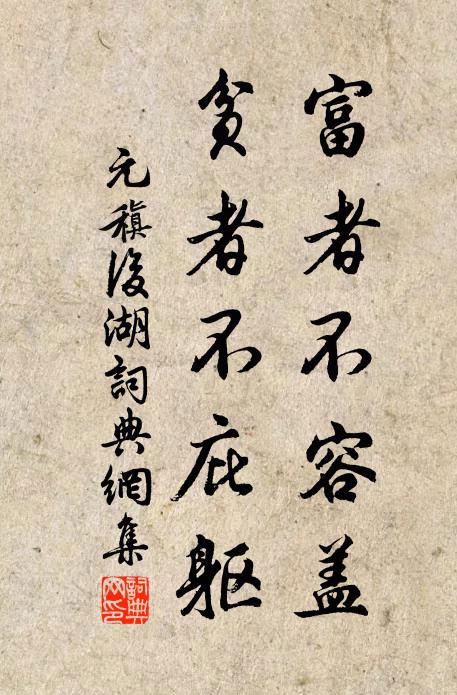 富者不容盖
貧者不庇軀
元稹後湖詞典網集
詞典
网印